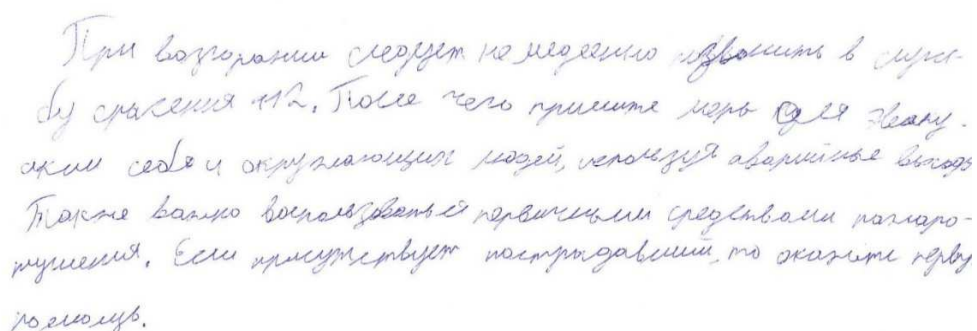 При возгорании следует немедленно позвонить в служ-
бу спасения 112. После чего примите меры для эваку-
ации себя и окружающих людей, используя аварийные выходы
Также важно воспользоваться первичными средствами пожаро-
тушения. Если присутствует пострадавший, то окажите первую
помощь.